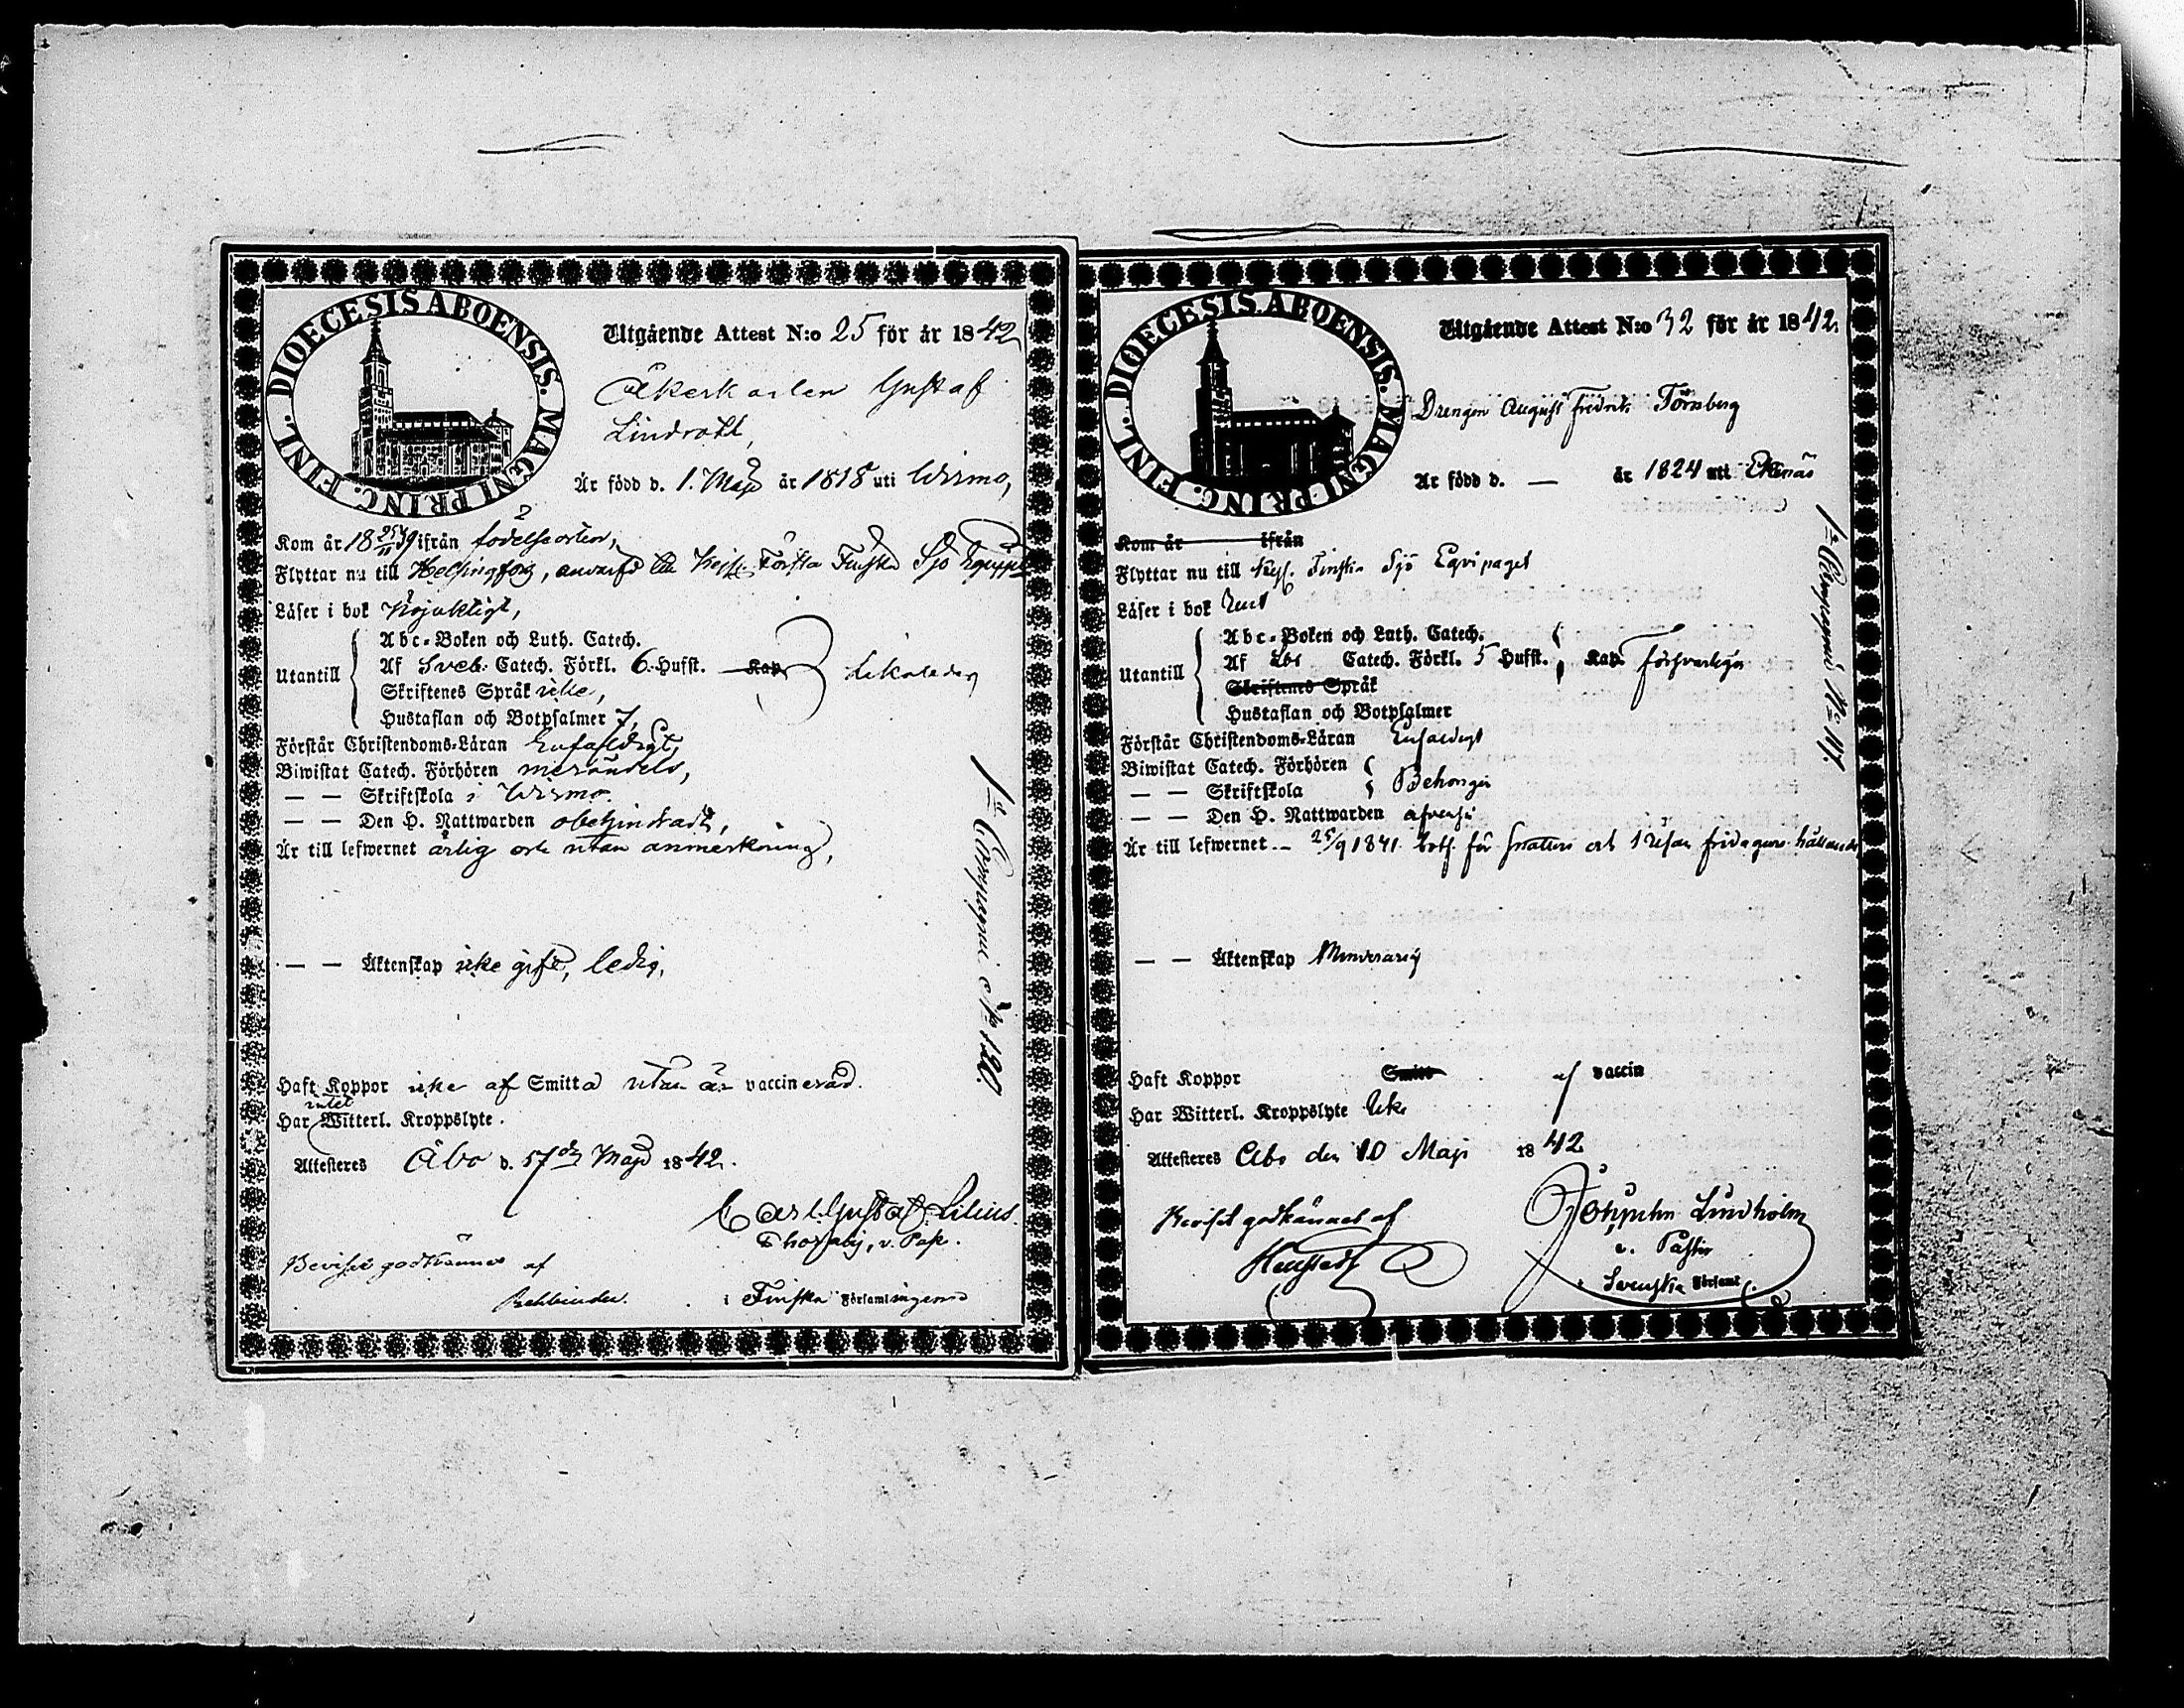 DIOECESIS ABOENSIS. MAGNI PRINC. FINL.
Utgående Attest N:o 25 för år 1842
Åkerkarlen Gustaf
Lindroth,
Är född d. 1. Maji år 1818 uti Wirmo,
Kom år 18 39 ifrån födelseorten,
Flyttar nu till Helsingfors, anwärfd till Kejs. Första Finska Sjö Equipaget
Läser i bok Nöjaktigt,
Abc-Boken och Luth. Catech.
Utantill Af Sveb. Catech. Förkl. 6. Hufst. Kap. Likaledes
Skriftenes Språk icke,
Hustaflan och Botpsalmer 7,
Förstår Christendoms-Läran Enfaldigt,
Biwistat Catech. Förhören merändels,
— — Skriftskola i Wirmo.
— — Den H. Nattwarden obehindradt,
Är till lefwernet ärlig och utan anmerkning,
— — Äktenskap icke gift, ledig,
Haft Koppor icke af Smitta utan är vaccinerad.
intet
Har Witterl. Kroppslyte.
Attesteres Åbo d. 17de Maji 1842.
Carl Gustaf Lilius.
v. Past.
Beviset godkännes af
Rehbinder.
i Finska Församlingen
1a Compagnie No 120.
DIOECESIS ABOENSIS. MAGNI PRINC. FINL.
Utgående Attest N:o 32 för år 1842.
Drengen August Fredrik Törnberg
Är född d. — år 1824 uti Ekenäs
Kom år ifrån
Flyttar nu till Kejs. Finska Sjö Eqvipaget
Läser i bok
Abc-Boken och Luth. Catech.
Utantill Af Catech. Förkl. 5 Hufst. Kap. försvarligen
Skriftenes Språk
Hustaflan och Botpsalmer
Förstår Christendoms-Läran Enfaldigt
Biwistat Catech. Förhören
— — Skriftskola Behörigen
— — Den H. Nattwarden
Är till lefwernet — 25/9 1841 för snatteri och 1 resan
— — Äktenskap Minderårig
Haft Koppor Smitta af vaccin
Har Witterl. Kroppslyte Icke
Attesteres Åbo den 10 Maji 1842
Beviset godkännes af
Lindholm
v. Pastor
i Svenska Församl.
1a Compagnie No